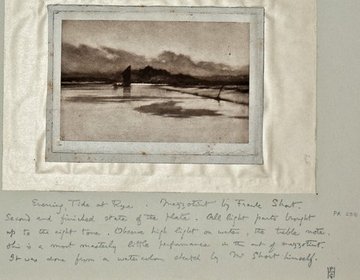 Evening, Tide at Rye. Mezzotint by Frank Short.
Second and finished state of the plate. All light parts brought
up to the right tone. Observe high light on water, the table water.
This is a most masterly little performance in the art of mezzotint.
It was done from a watercolour sketch by Mr Short himself.